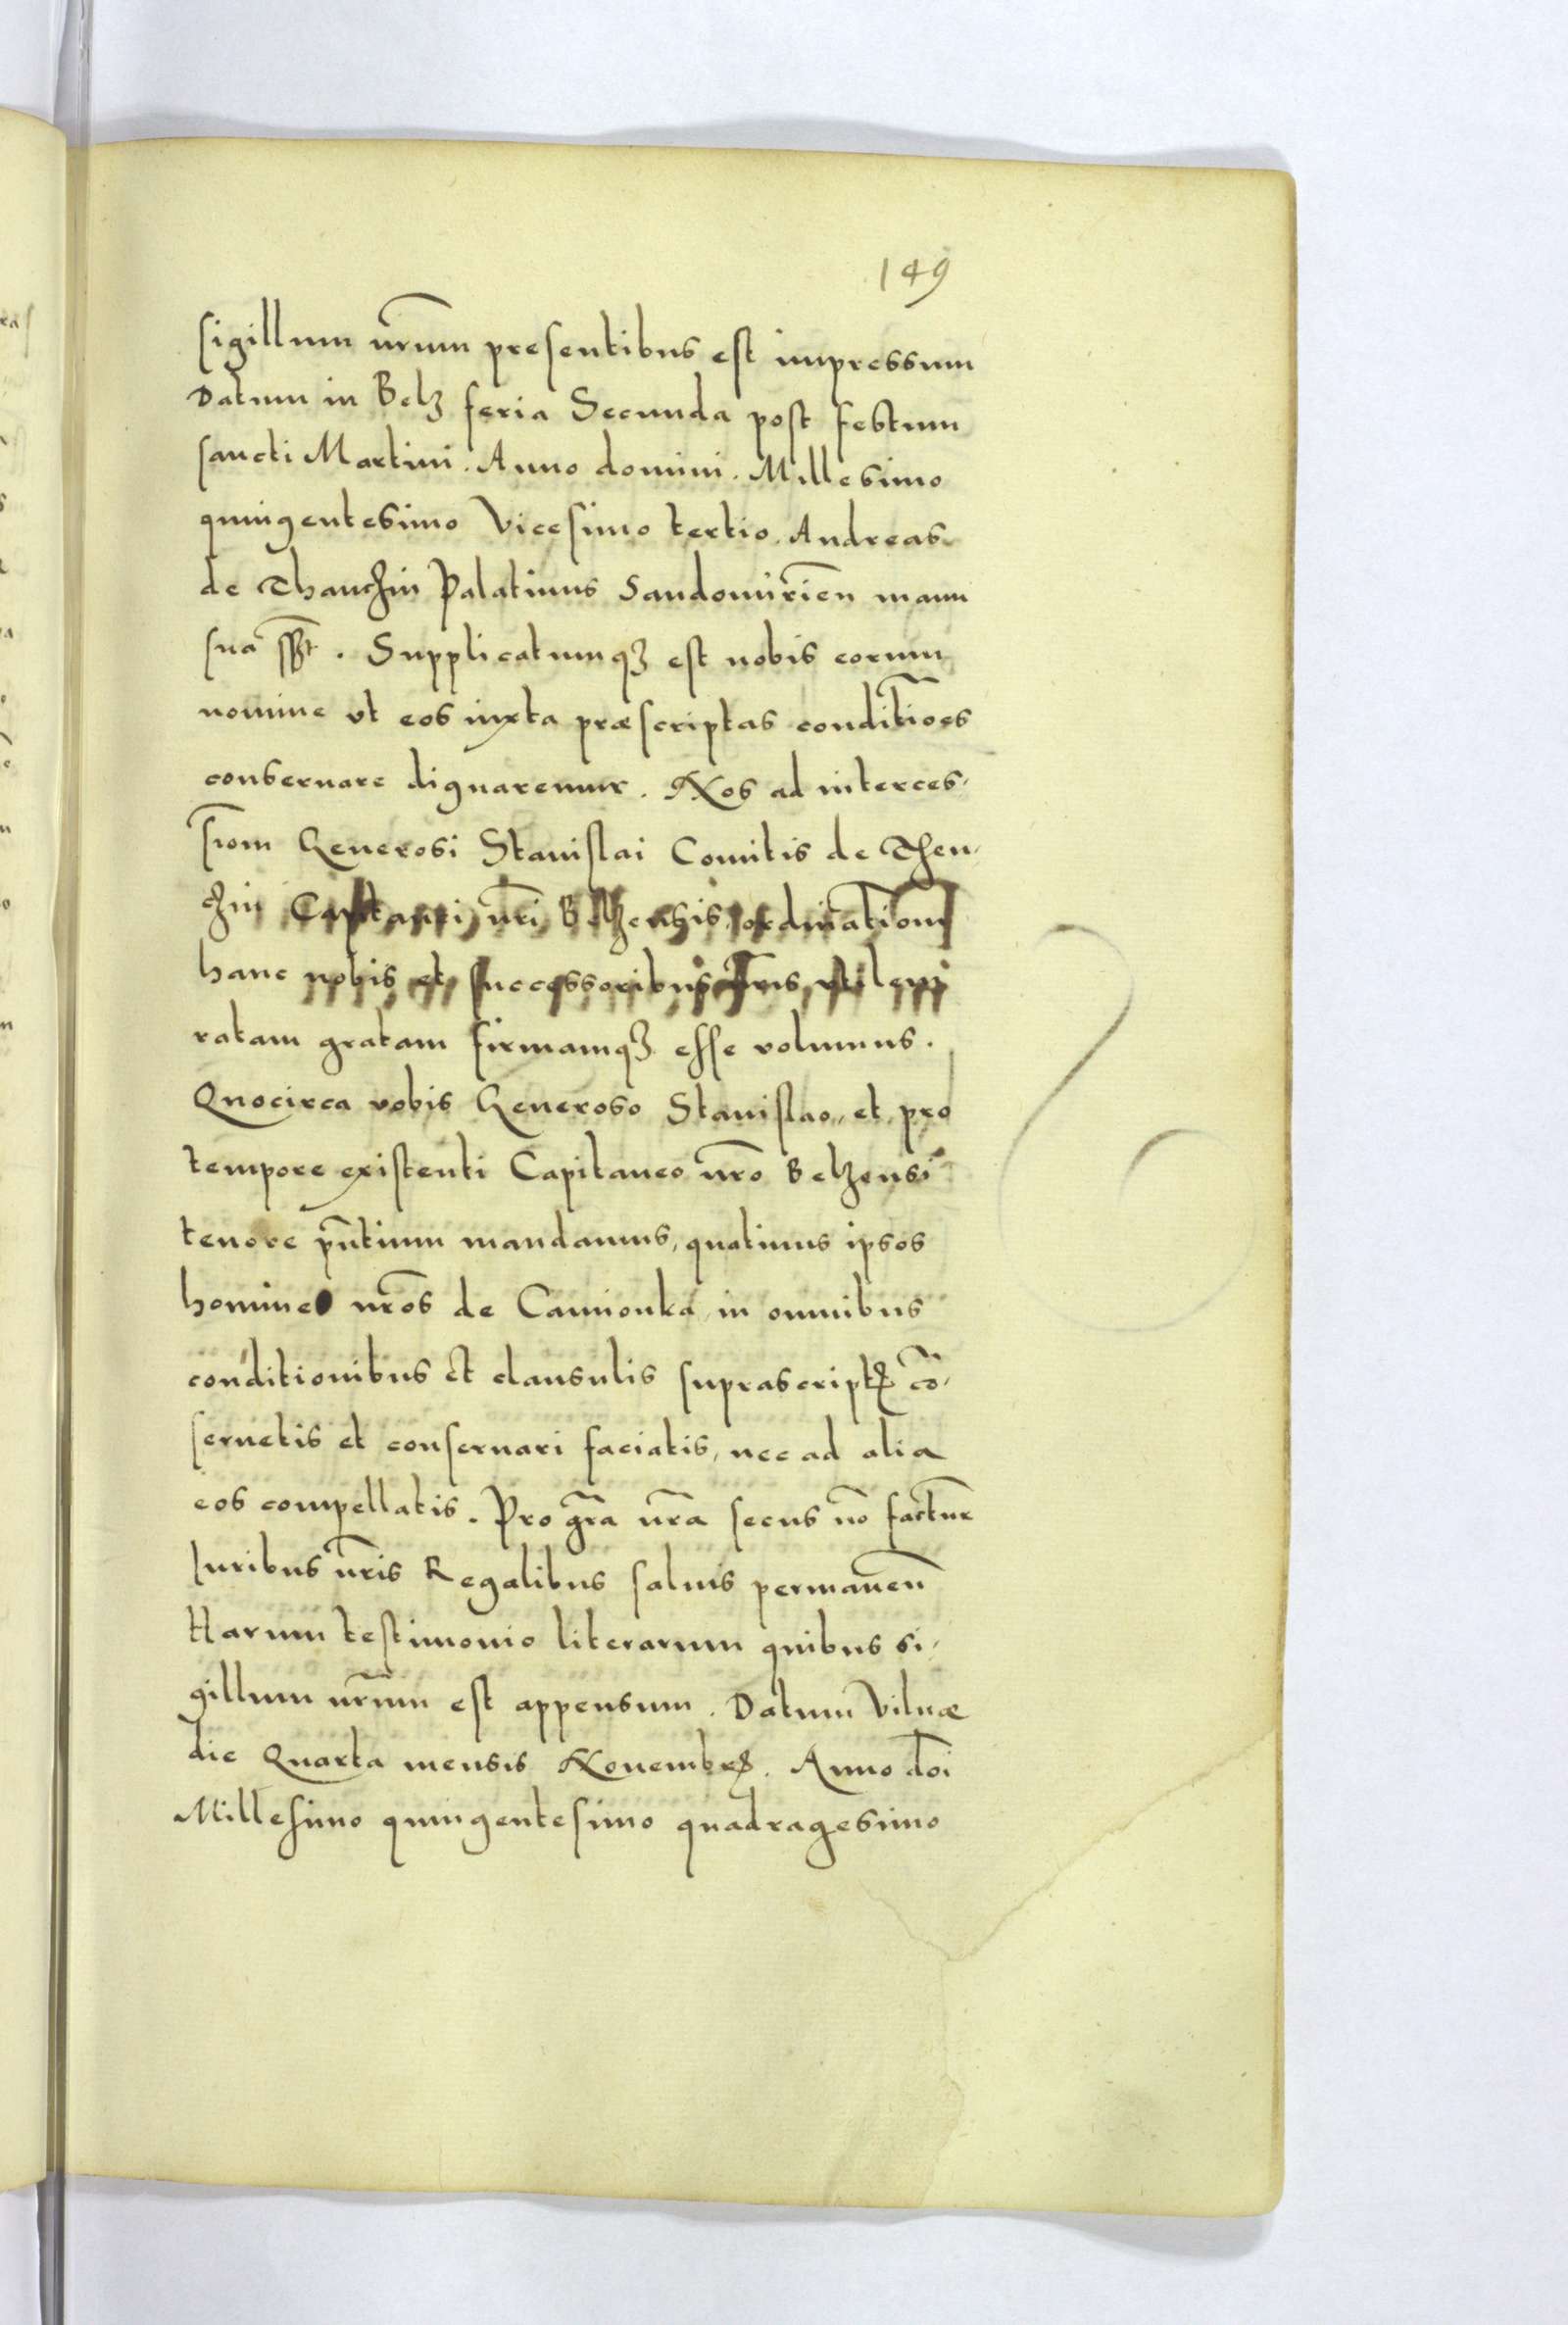 149
sigillum nr̃um presentibus est impressum
Datum in Belz feria Secunda post festum
sancti Martini. Anno domini. Millesimo
quingentesimo Vicesimo tertio. Andreas
de Thanczin Palatinus Sandomiriẽn manu
sua sßt. Supplicatumqʒ est nobis eorum
nomine vt eos iuxta præscriptas conditio͂es
conseruare dignaremur. Nos ad interces-
siom̃ Generosi Stanislai Comitis de Then-
czin Capitanei nr̃i Belzensis, ordinatiom̃
hanc nobis et successoribus nr̃is vtilem
ratam gratam firmamqʒ esse volumus.
Quocirca vobis Generoso Stanislao, et pro
tempore existenti Capitaneo nr̃o Belzensi
tenore pñtium mandamus, quatinus ipsos
homines nr̃os de Camionka, in omnibus
conditionibus et clausulis suprascriptꝭ cõ-
seruetis et conseruari faciatis, nec ad alia
eos compellatis. Pro gr̃a nr̃a secus nõ factur̃
Iuribus nr̃is Regalibus saluis permaneñ
Harum testimonio literarum quibus si-
gillum nr̃um est appensum. Datum Vilnæ
die Quarta mensis Nouembrꝭ. Anno dõi
Millesimo quingentesimo quadragesimo